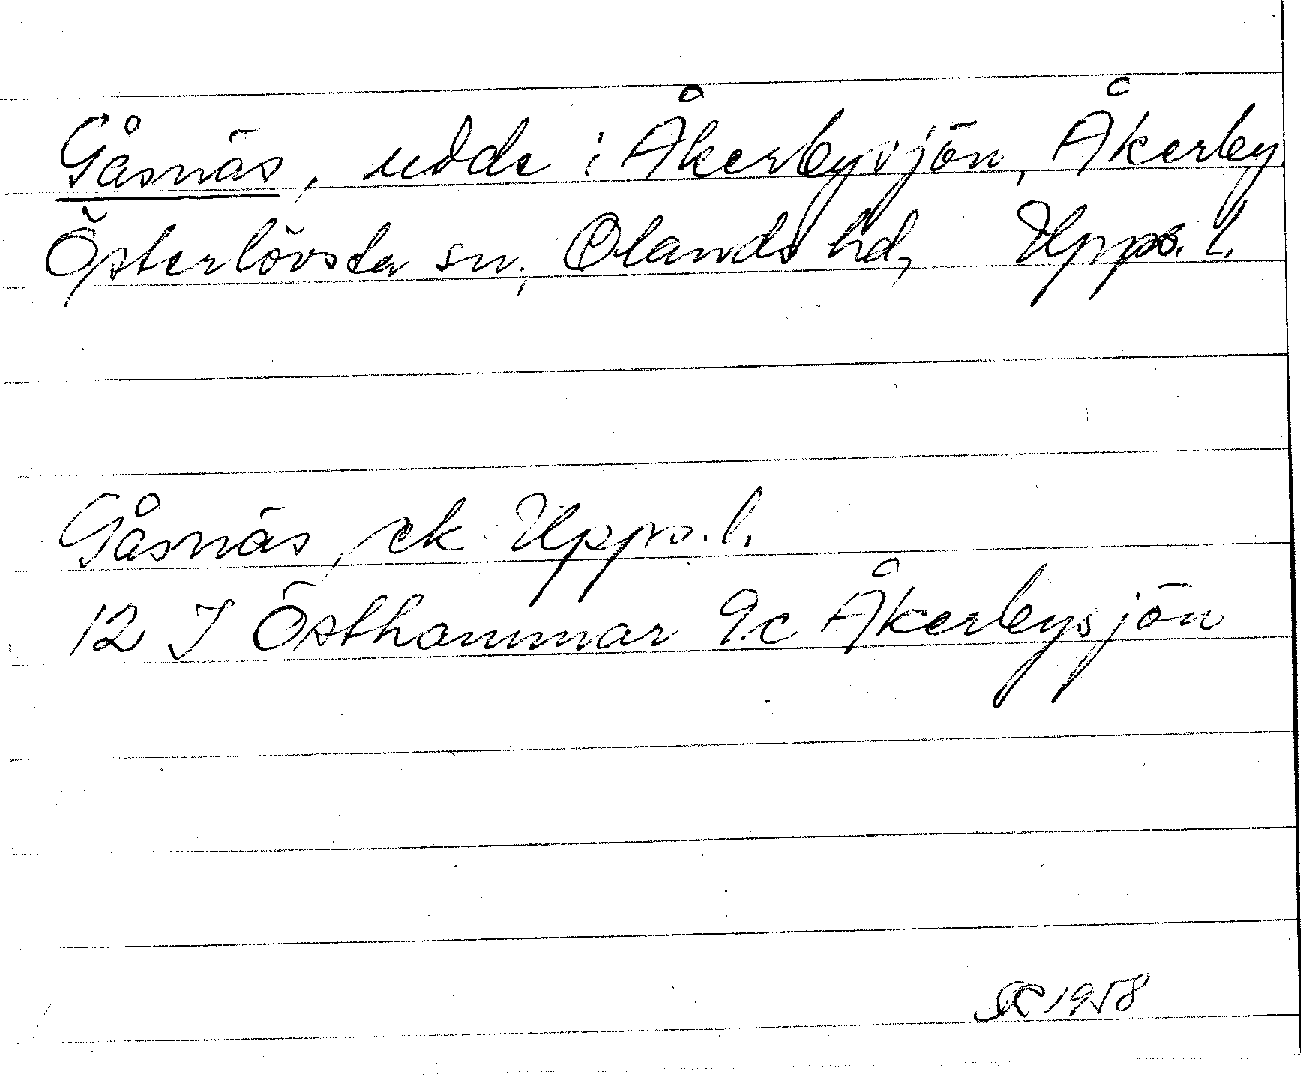 Gåsnäs, udde i Åkerbysjön, Åkerby
Österlövsta sn, Olands hd, Upps. l.
Gåsnäs, ek Upps. l.
12 I Östhammar 9c Åkerbysjön
1958